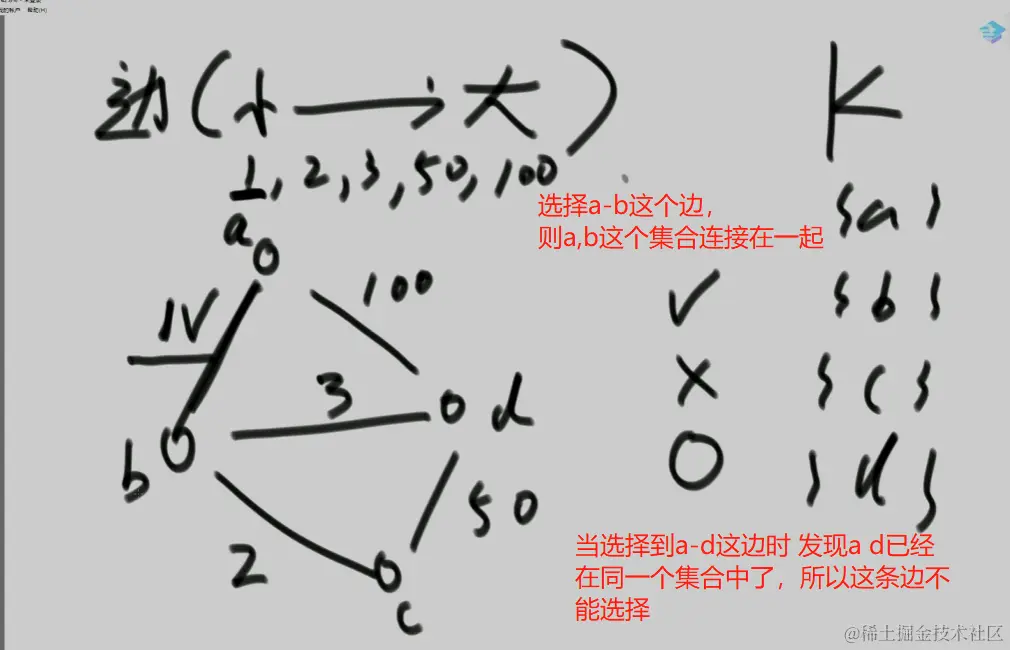 我的帐户 帮助(H)
边(小→大)
K
1,2,3,50,100
选择a-b这个边，
则a,b这个集合连接在一起
{a}
a
100
{b}
1√
√
3
d
×
{c}
b
{d}
50
2
当选择到a-d这边时 发现a d已经
在同一个集合中了，所以这条边不
能选择
c
@稀土掘金技术社区